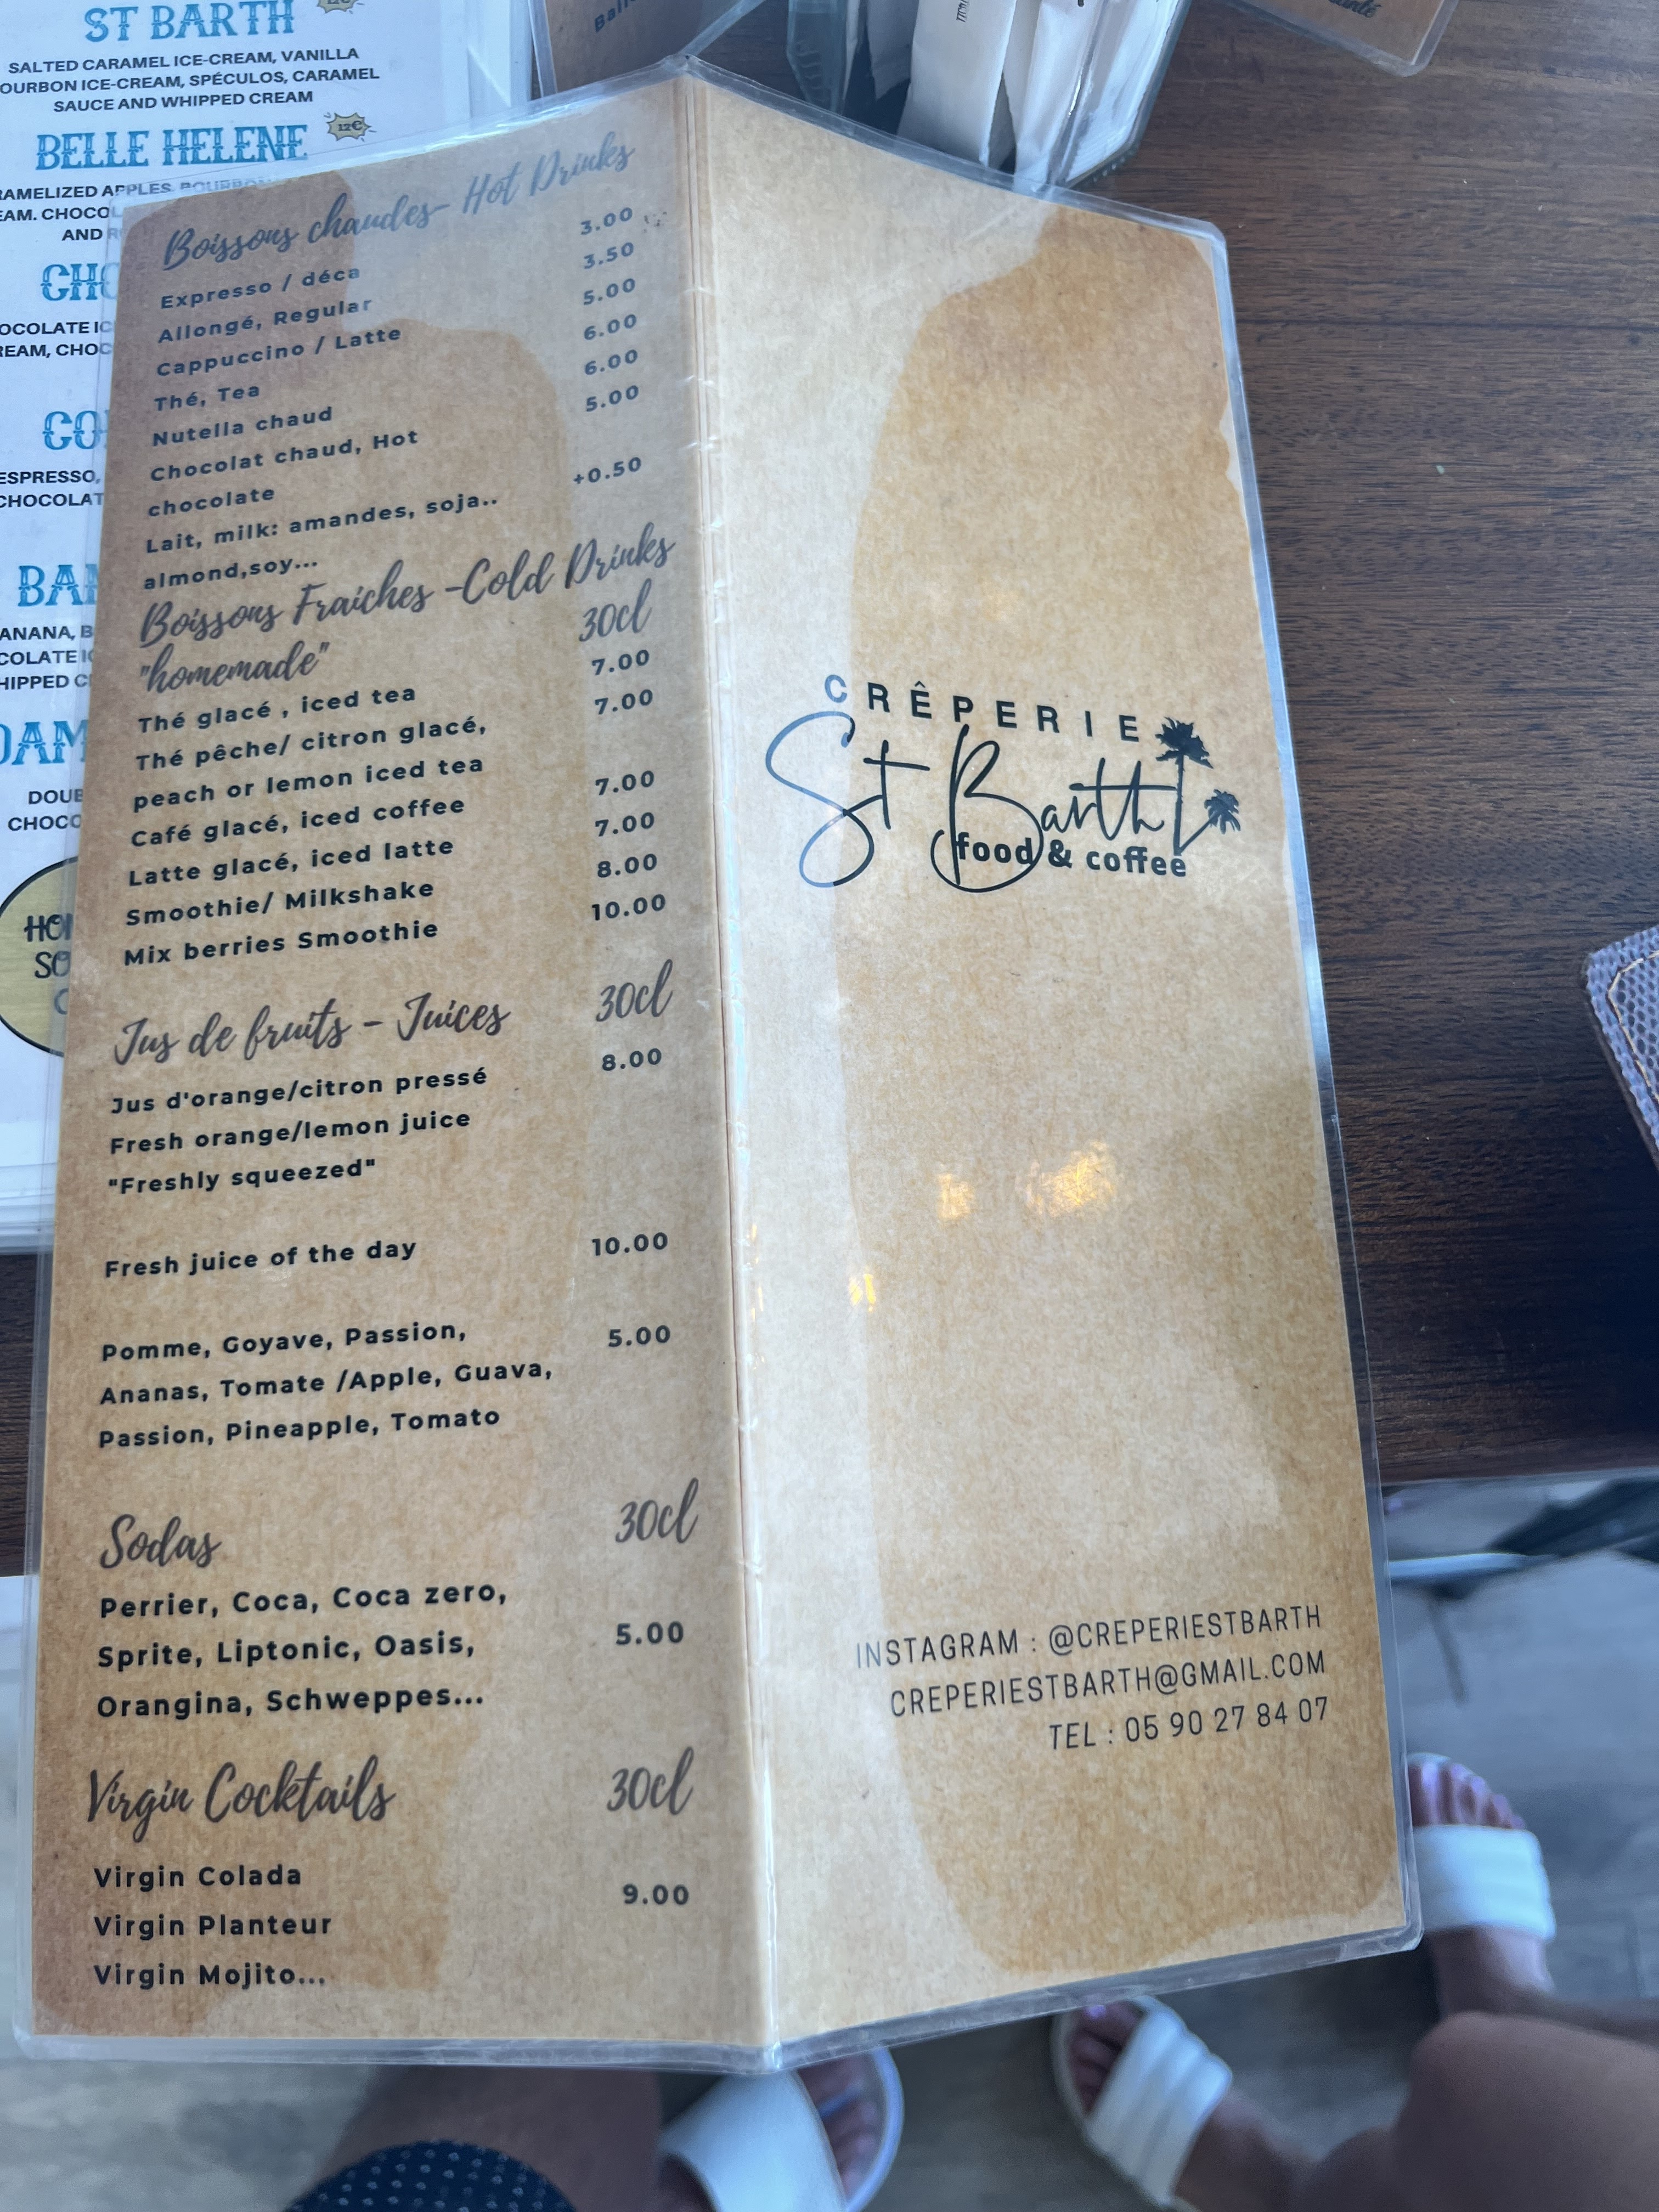 ST BARTH
SALTED CARAMEL ICE-CREAM, VANILLA
OURBON ICE-CREAM, SPÉCULOS, CARAMEL
SAUCE AND WHIPPED CREAM
BELLE HELENE 12€
RAMELIZED APPLES, BOURBON
EAM. CHOCOL
AND
CHO
OCOLATE IC
REAM, CHOC
CO
ESPRESSO,
CHOCOLAT
BAN
ANANA, B
COLATE IC
HIPPED C
DAM
DOUB
CHOCO
HOM
SO
Boissons chaudes- Hot Drinks
Expresso / déca 3.00
Allongé, Regular 3.50
Cappuccino / Latte 5.00
Thé, Tea 6.00
Nutella chaud 6.00
Chocolat chaud, Hot 5.00
chocolate
Lait, milk: amandes, soja.. +0.50
almond,soy...
Boissons Fraiches -Cold Drinks
"homemade" 30cl
Thé glacé , iced tea 7.00
Thé pêche/ citron glacé, 7.00
peach or lemon iced tea
Café glacé, iced coffee 7.00
Latte glacé, iced latte 7.00
Smoothie/ Milkshake 8.00
Mix berries Smoothie 10.00
Jus de fruits - Juices 30cl
Jus d'orange/citron pressé 8.00
Fresh orange/lemon juice
"Freshly squeezed"
Fresh juice of the day 10.00
Pomme, Goyave, Passion, 5.00
Ananas, Tomate /Apple, Guava,
Passion, Pineapple, Tomato
Sodas 30cl
Perrier, Coca, Coca zero,
Sprite, Liptonic, Oasis, 5.00
Orangina, Schweppes...
Virgin Cocktails 30cl
Virgin Colada 9.00
Virgin Planteur
Virgin Mojito...
CRÊPERIE
St Barth
food & coffee
INSTAGRAM : @CREPERIESTBARTH
CREPERIESTBARTH@GMAIL.COM
TEL : 05 90 27 84 07